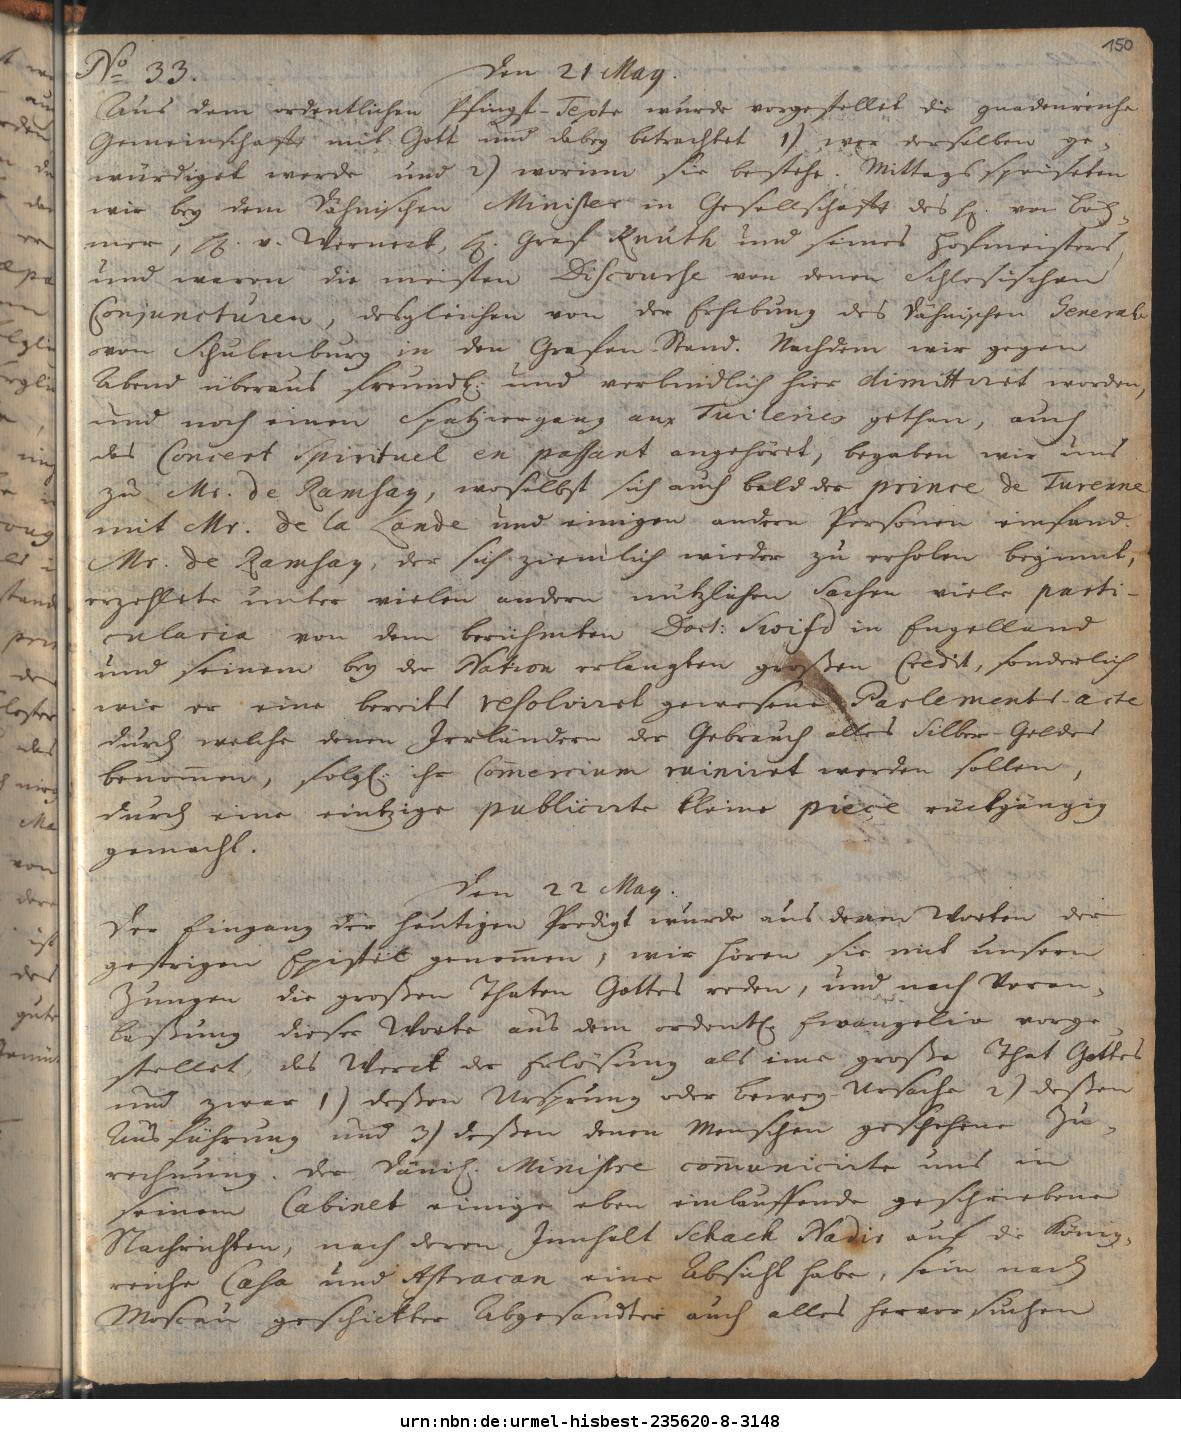 150
No 33. Den 21 May.
Aus dem ordentlichen Pfingst-Texte wurde vorgestellet die gnadenreiche
Gemeinschafft mit Gott und dabey betrachtet 1) wer derselben ge-
würdiget werde und 2) worinn sie bestehe. Mittags speiseten
wir bey dem Dähnischen Minister in Gesellschafft des H. von
H. v. Werneck, H. Graf Knuth und seines Hofmeisters,
und waren die meisten Discourse von denen Schlesischen
Conjuncturen, desgleichen von der Erhebung des Dähnischen Generals
von Schulenburg in den Grafen-Stand. Nachdem wir gegen
Abend überaus freundl. und verbindlich hier dimittiret worden,
und noch einen Spatziergang aux Tuileries gethan, auch
das Concert Spirituel en passant angehöret, begaben wir uns
zu Mr. de Ramsay, woselbst sich auch bald der prince de Turenne
mit Mr. de la Lande und einigen andern Personen einfand.
Mr. de Ramsay, der sich ziemlich wieder zu erholen beginnt,
erzehlete unter vielen andern nützlichen Sachen viele parti-
cularia von dem berühmten Doct: Swifd in Engelland
und seinem bey der Nation erlangten großen Credit, sonderlich
wie er eine bereits resolviret gewesene Parlements-acte
durch welche denen Irrländern der Gebrauch alles Silber-Geldes
benom̅en, folgl. ihr Com̅ercium ruiniret werden sollen,
durch eine eintzige publicirte kleine piece rückgängig
gemacht.
Den 22 May.
Der Eingang der heutigen Predigt wurde aus denen Worten der
gestrigen Epistel genom̅en, wir hören sie mit unsern
Zungen die großen Thaten Gottes reden, und nach Veran-
laßung dieser Worte aus dem ordentl. Evangelio vorge
stellet, das Werck der Erlösung als eine große That Gottes
und zwar 1) deßen Ursprung oder beweg-Ursache 2) deßen
Ausführung und 3) deßen denen Menschen geschehene Zu-
rechnung. Der Dänis. Ministre com̅unicirte uns in
seinem Cabinet einige eben einlauffende geschriebene
Nachrichten, nach deren Innhalt Schach Nadir auf die König-
reiche Casa und Astracan eine Absicht habe, sein nach
Moscau geschickter Abgesandter auch alles hervor suchen
urn:nbn:de:urmel-hisbest-235620-8-3148